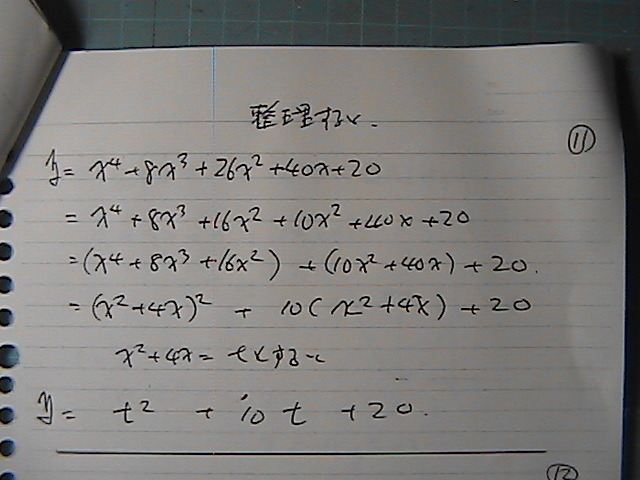 整理すると.
⑪
y = x⁴ + 8x³ + 26x² + 40x + 20
= x⁴ + 8x³ + 16x² + 10x² + 40x + 20
= (x⁴ + 8x³ + 16x²) + (10x² + 40x) + 20.
= (x² + 4x)² + 10(x² + 4x) + 20
x² + 4x = tとすると
y = t² + 10t + 20.
⑫